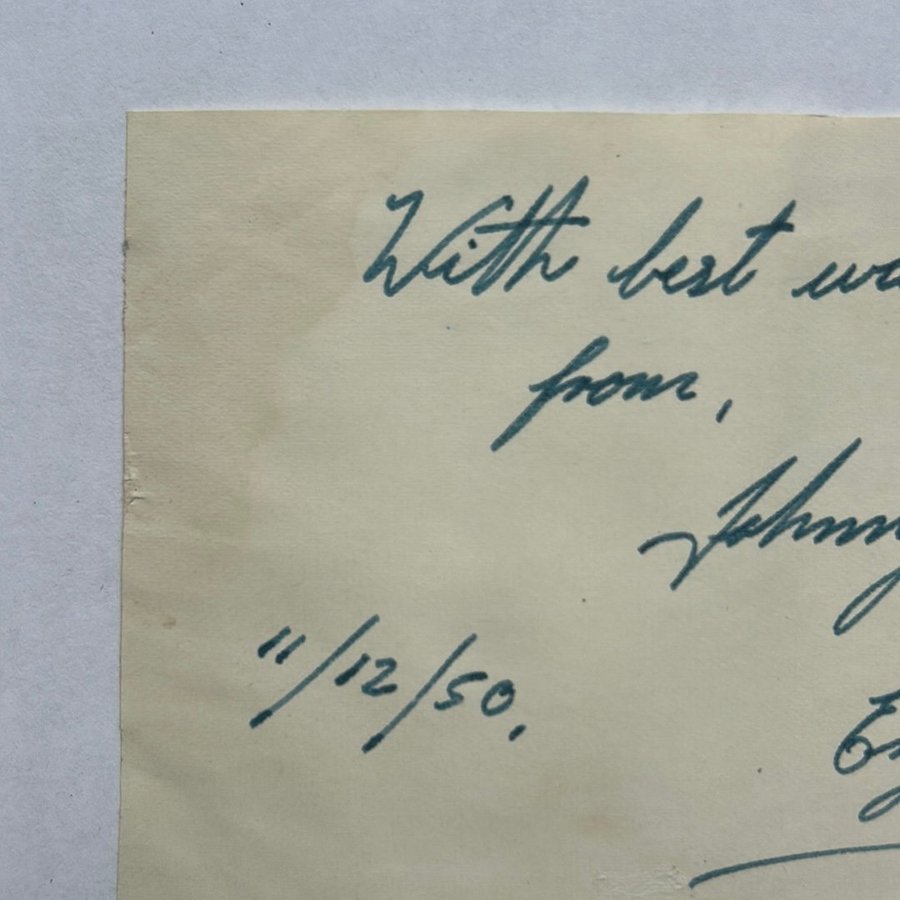 With best
from,
Johnny
11/12/50.